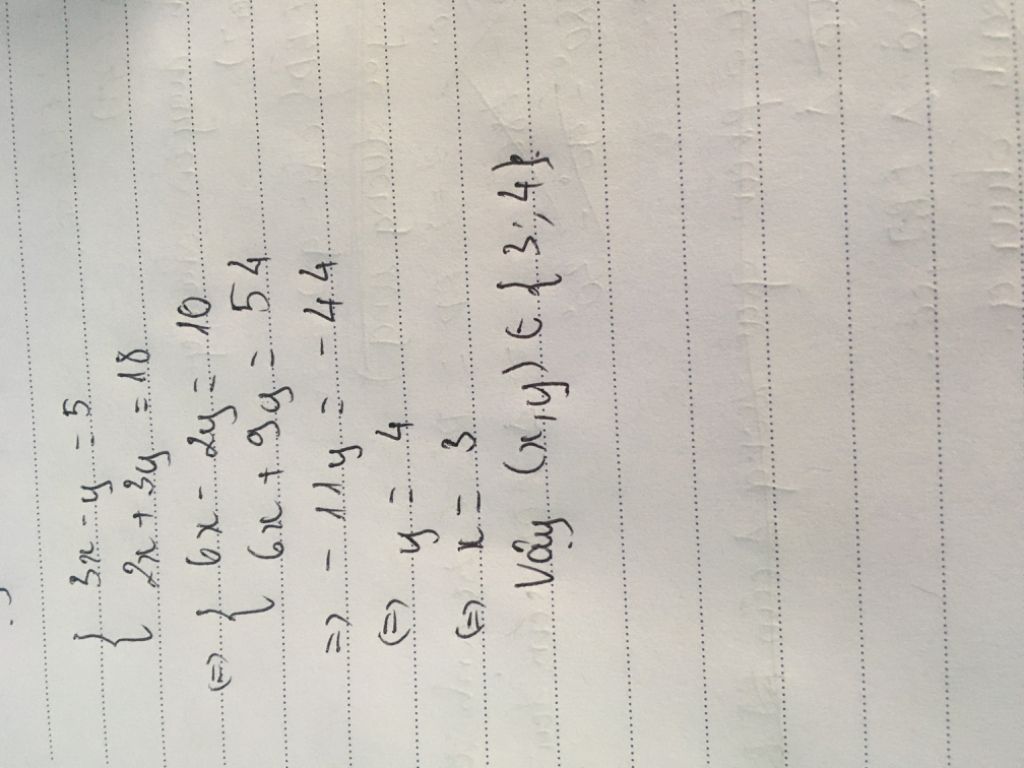 { 3x - y = 5
2x + 3y = 18
(=) { 6x - 2y = 10
6x + 9y = 54
=) - 11y = - 44
(=) y = 4
(=) x = 3
Vậy (x, y) ∈ { 3; 4 }.